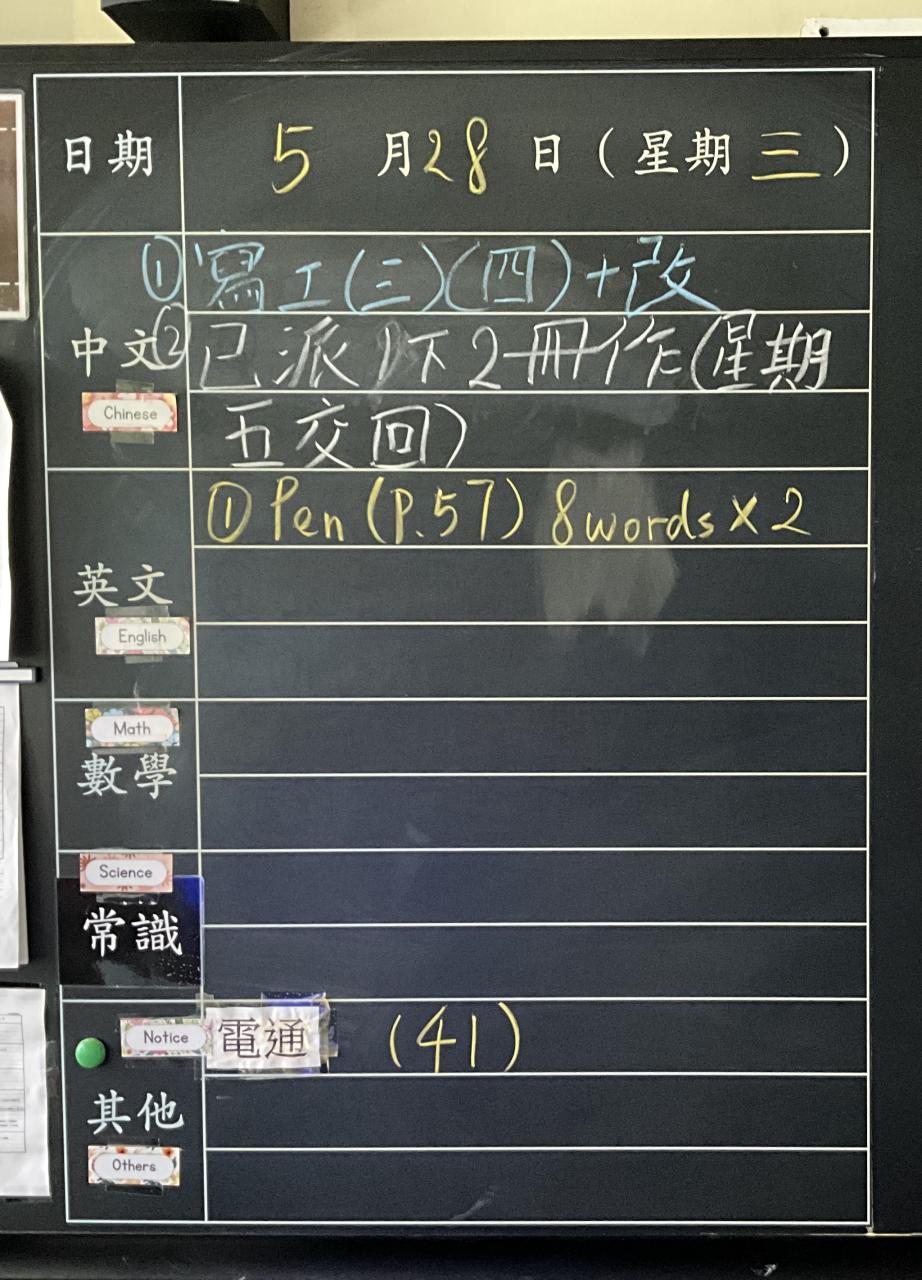 日期 5 月 28 日 (星期 三)
① 寫工(三)(四)+改
中文 ② 已派1下2冊作(星期
Chinese
五交回)
① Pen (P.57) 8 words × 2
英文
English
Math
數學
Science
常識
Notice 電通 (41)
其他
Others